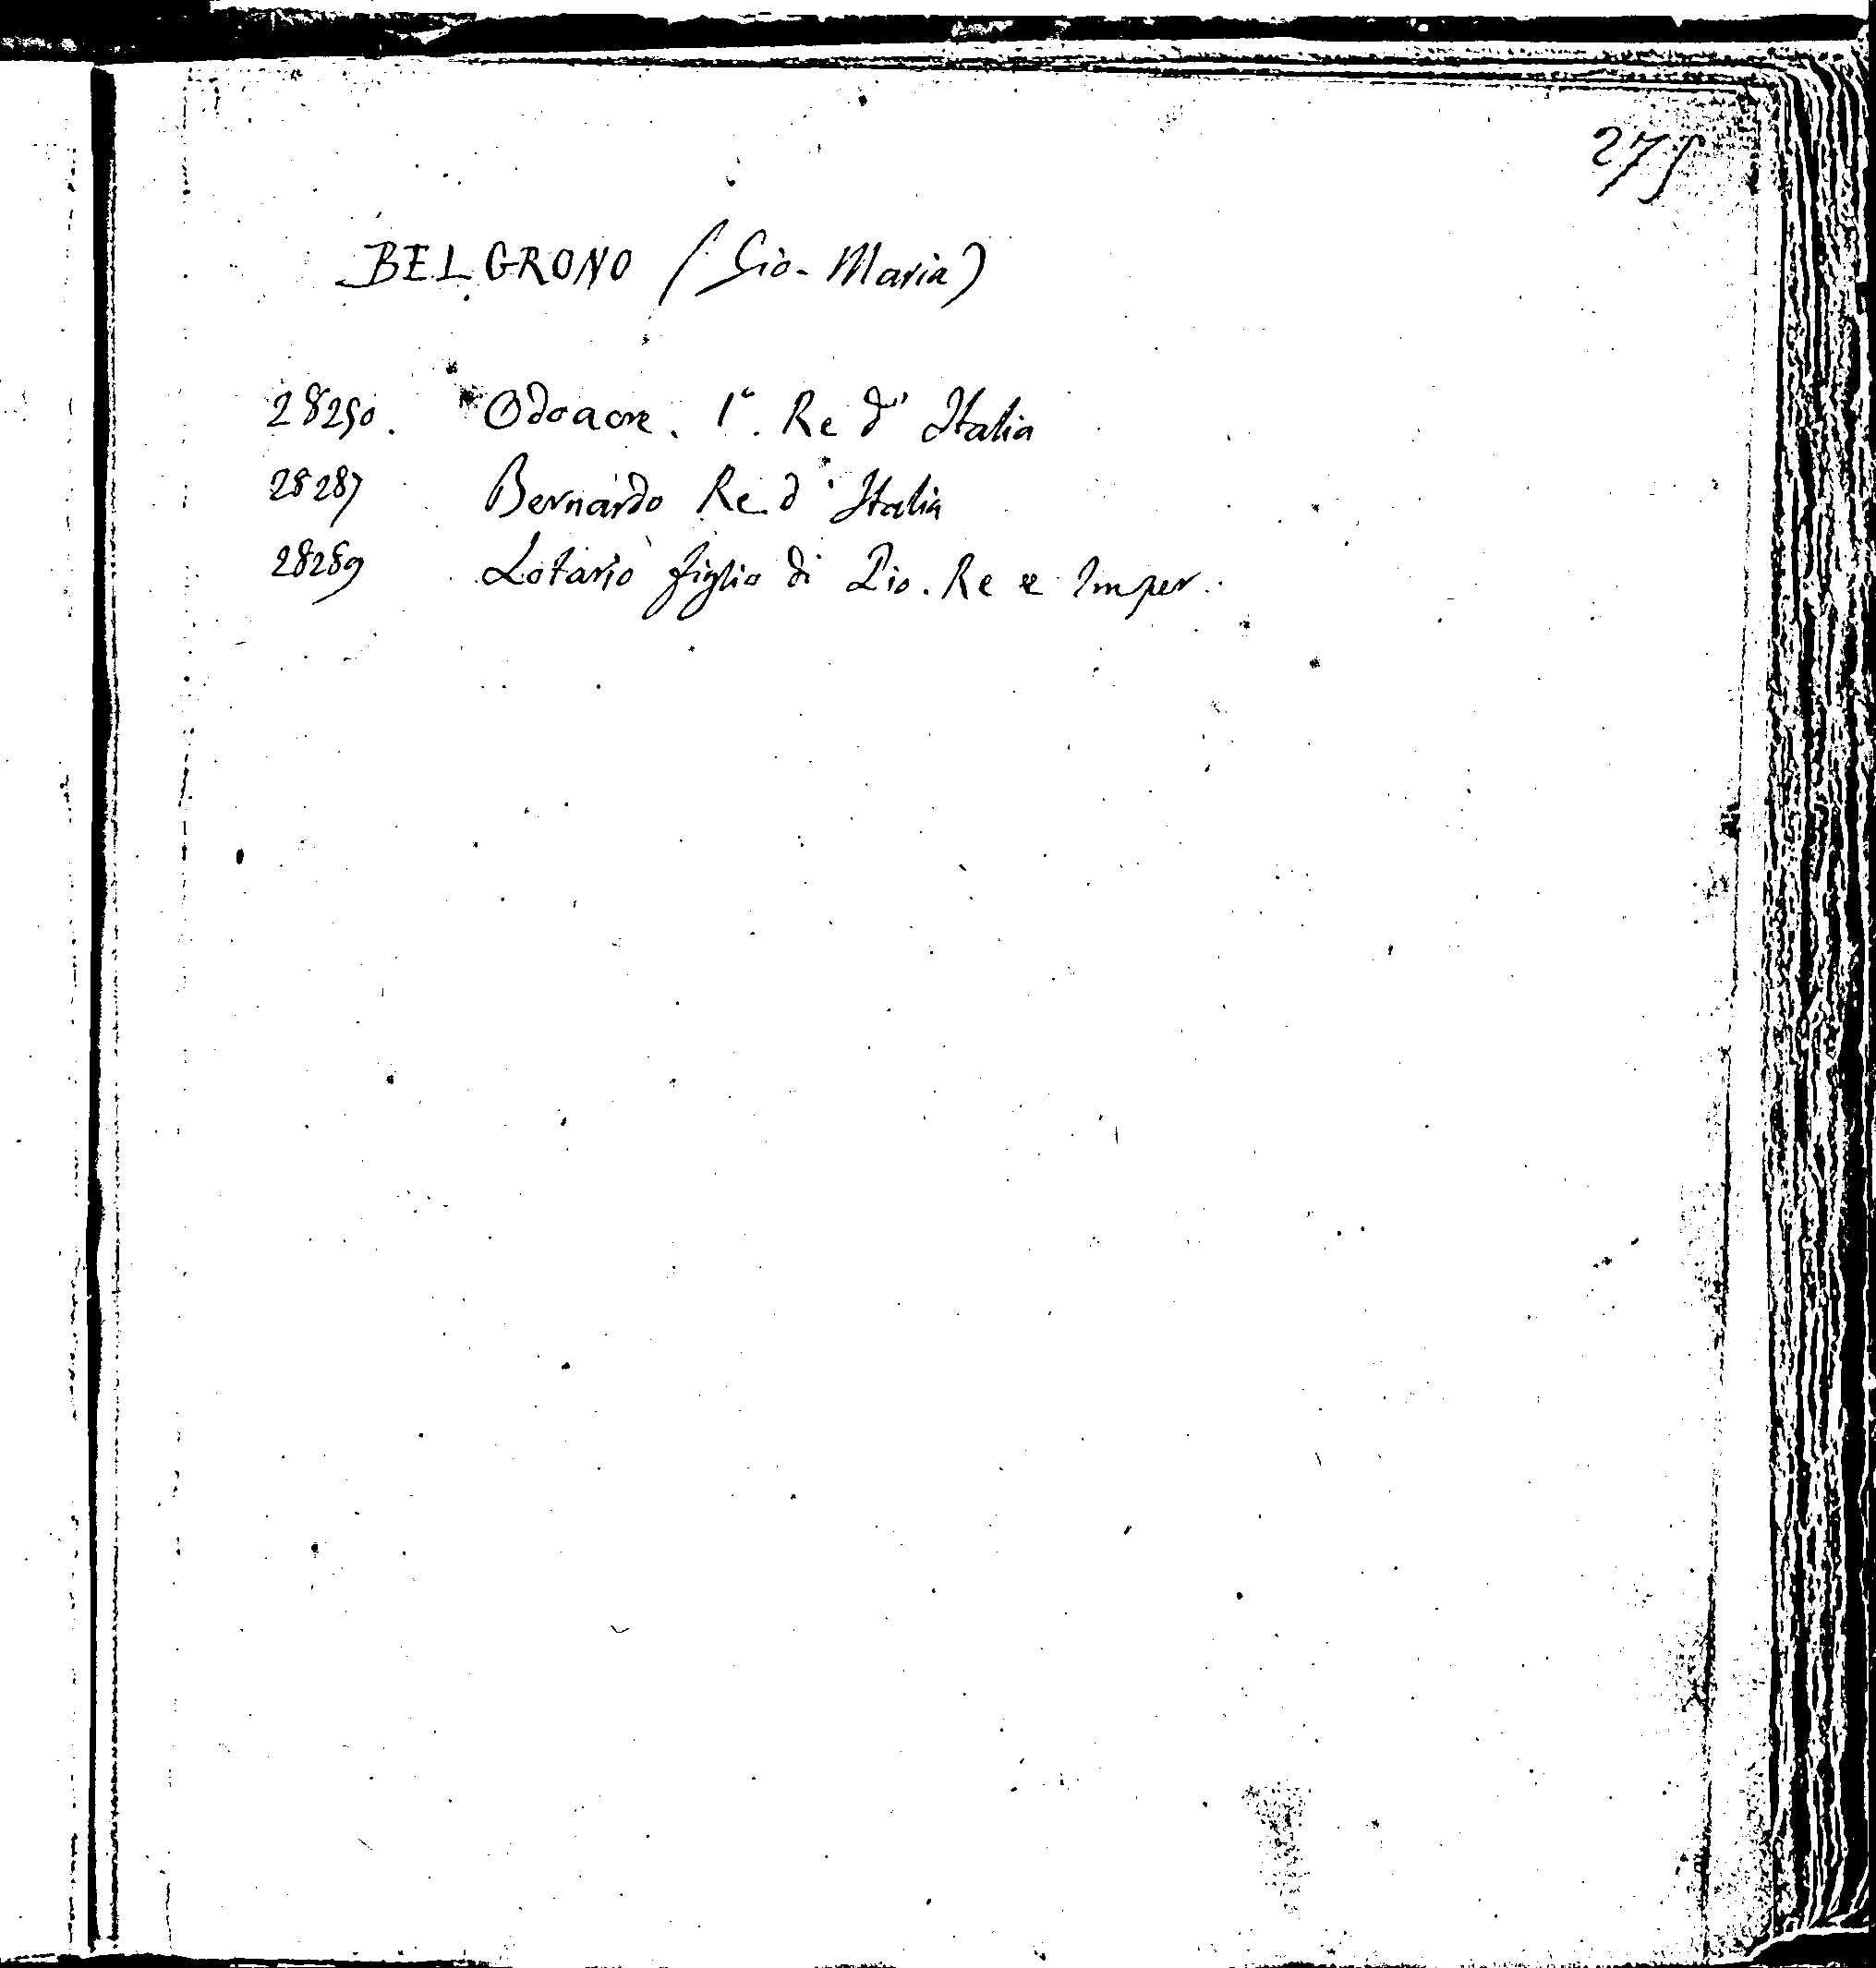 275
BELGRONO (Gio-Maria)
28250. Odoacre. 1º. Re d' Italia
28287 Bernardo Re d' Italia
28289 Lotario figlio di Pio. Re e Imper.